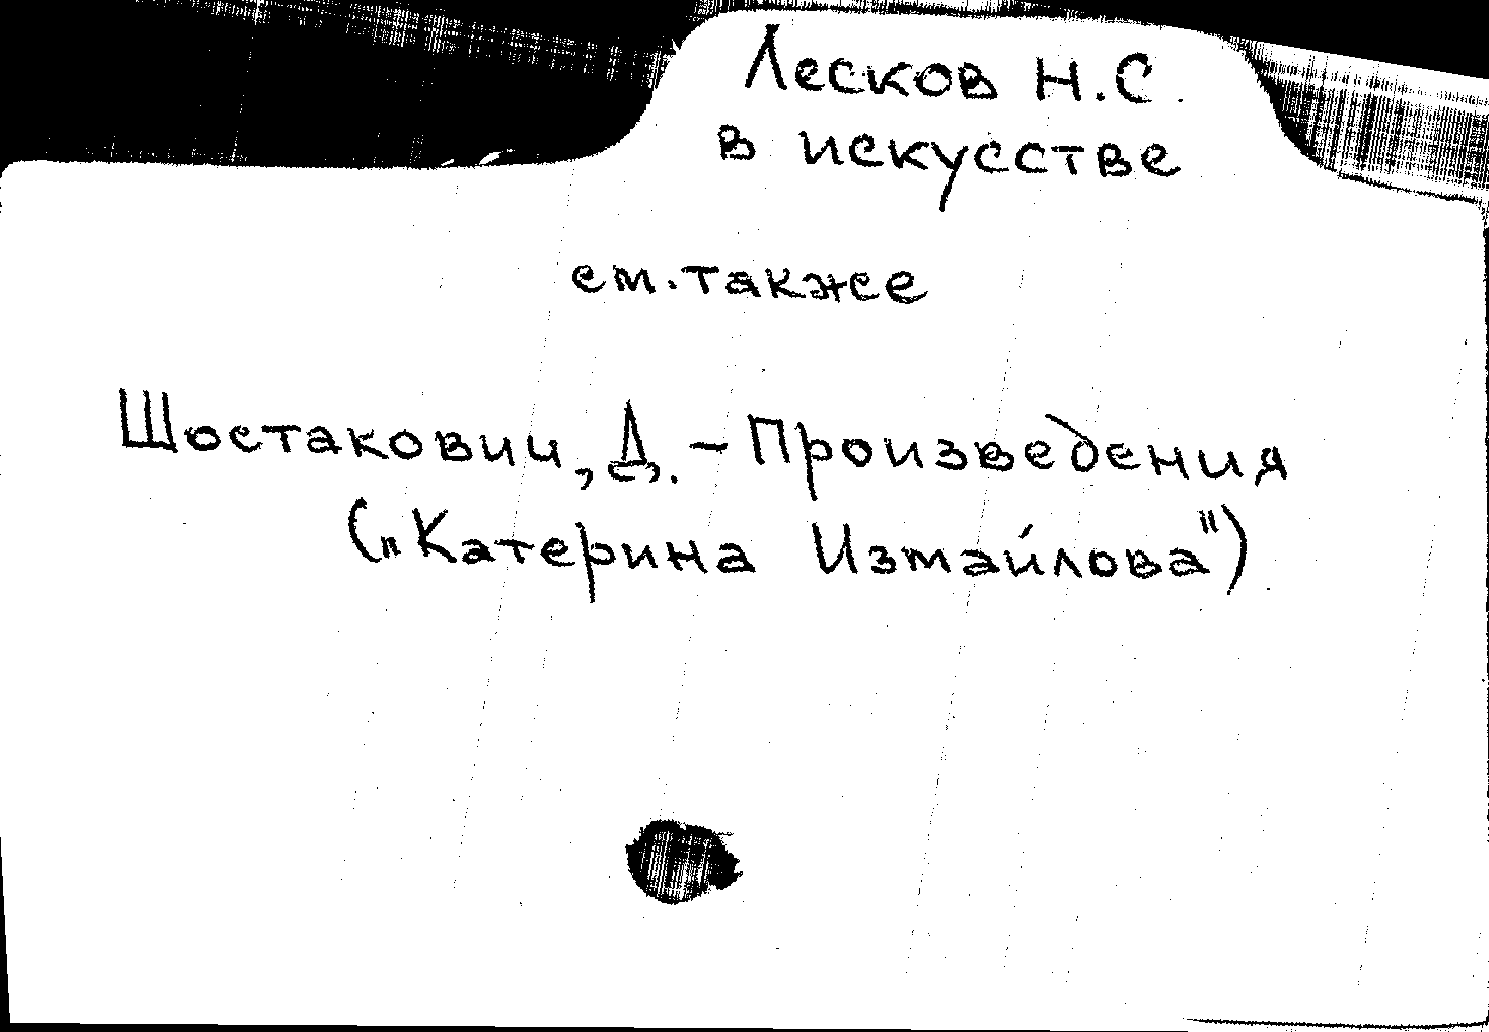 Лесков Н.С.
в искусстве
см. также
Шостакович, Д. - Произведения
(„Катерина Измайлова")